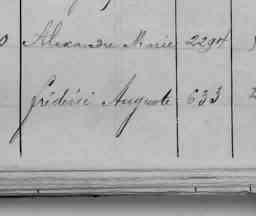 Alexandre Marie 2294
Fréderic Auguste 633